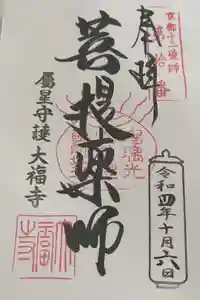 京都十二薬師
第拾番
奉拝
菩提薬師
属星守護 大福寺
令和四年十月六日
大福寺